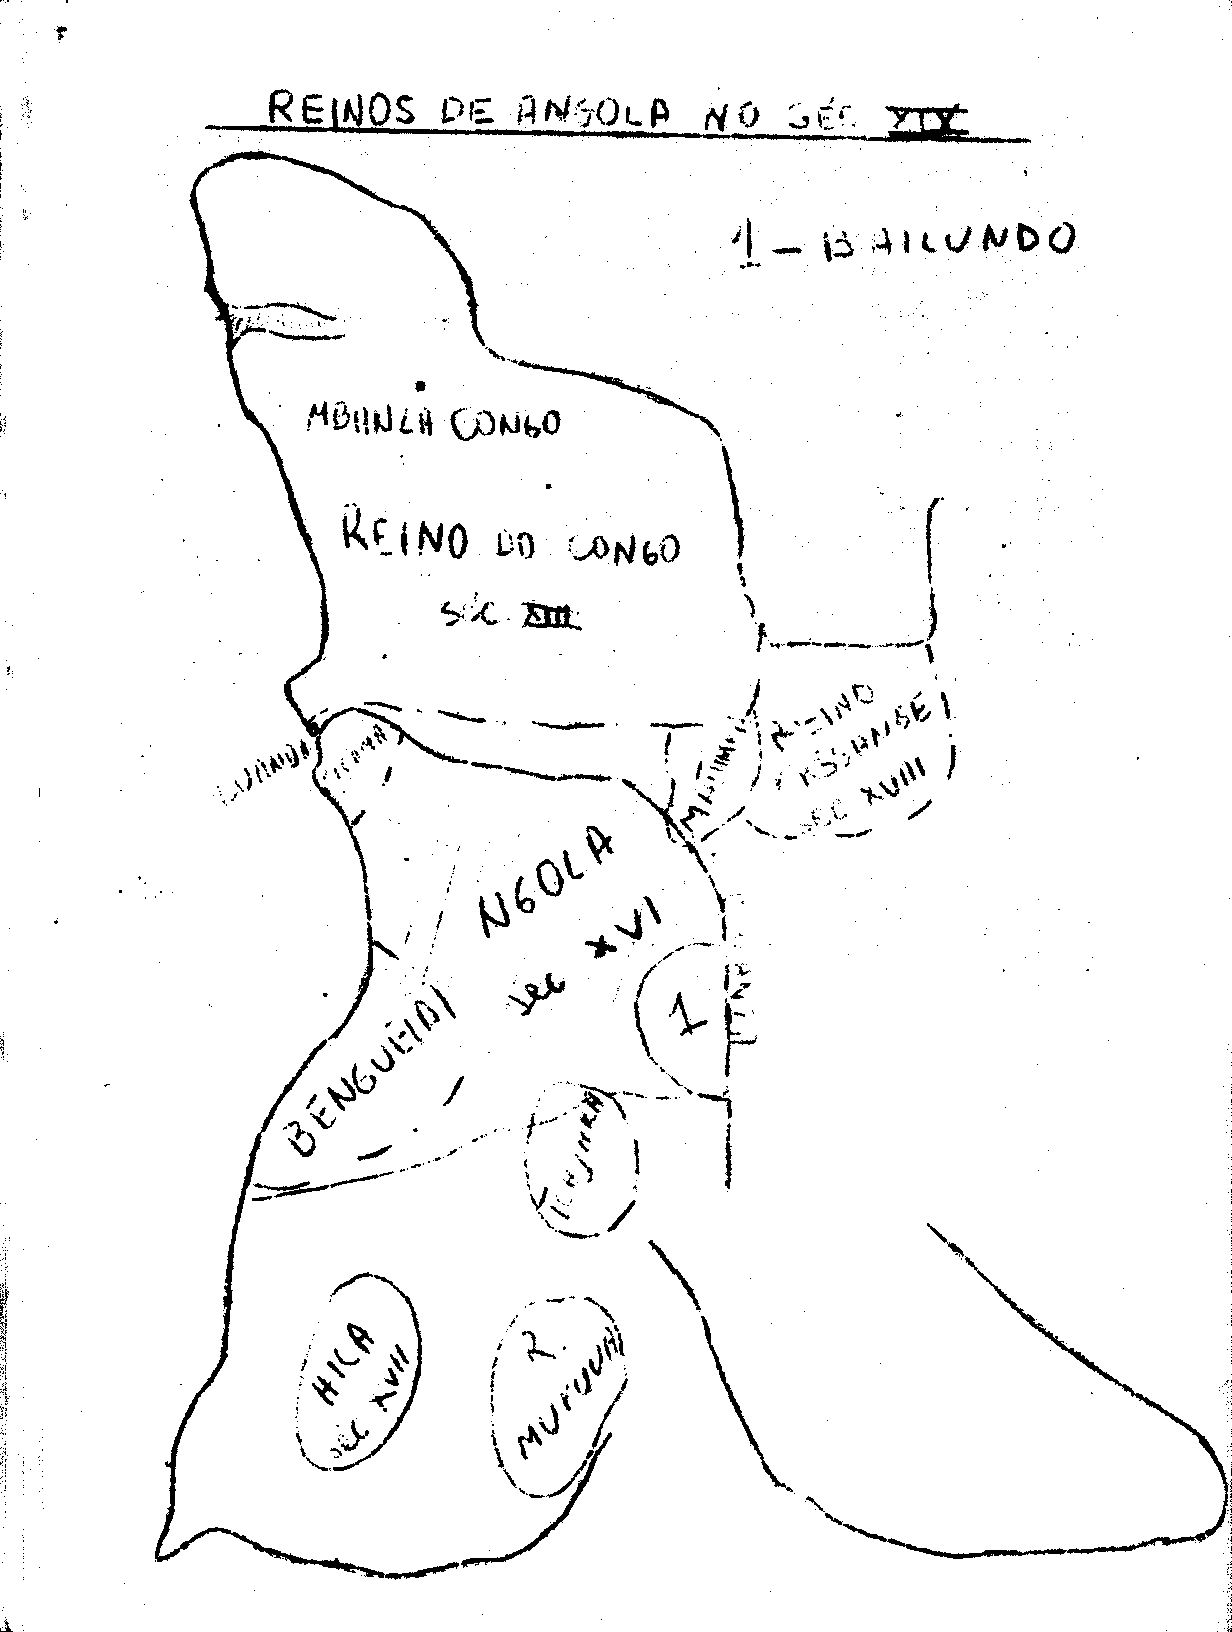 REINOS DE ANGOLA NO SÉC XIX
1 - BAILUNDO
MBANZA CONGO
REINO DO CONGO
SÉC XIII
LUANDA
REINO
KASSANGE
SÉC XVIII
NGOLA
séc XVI
1
BENGUELA
HILA
SÉC XVII
R.